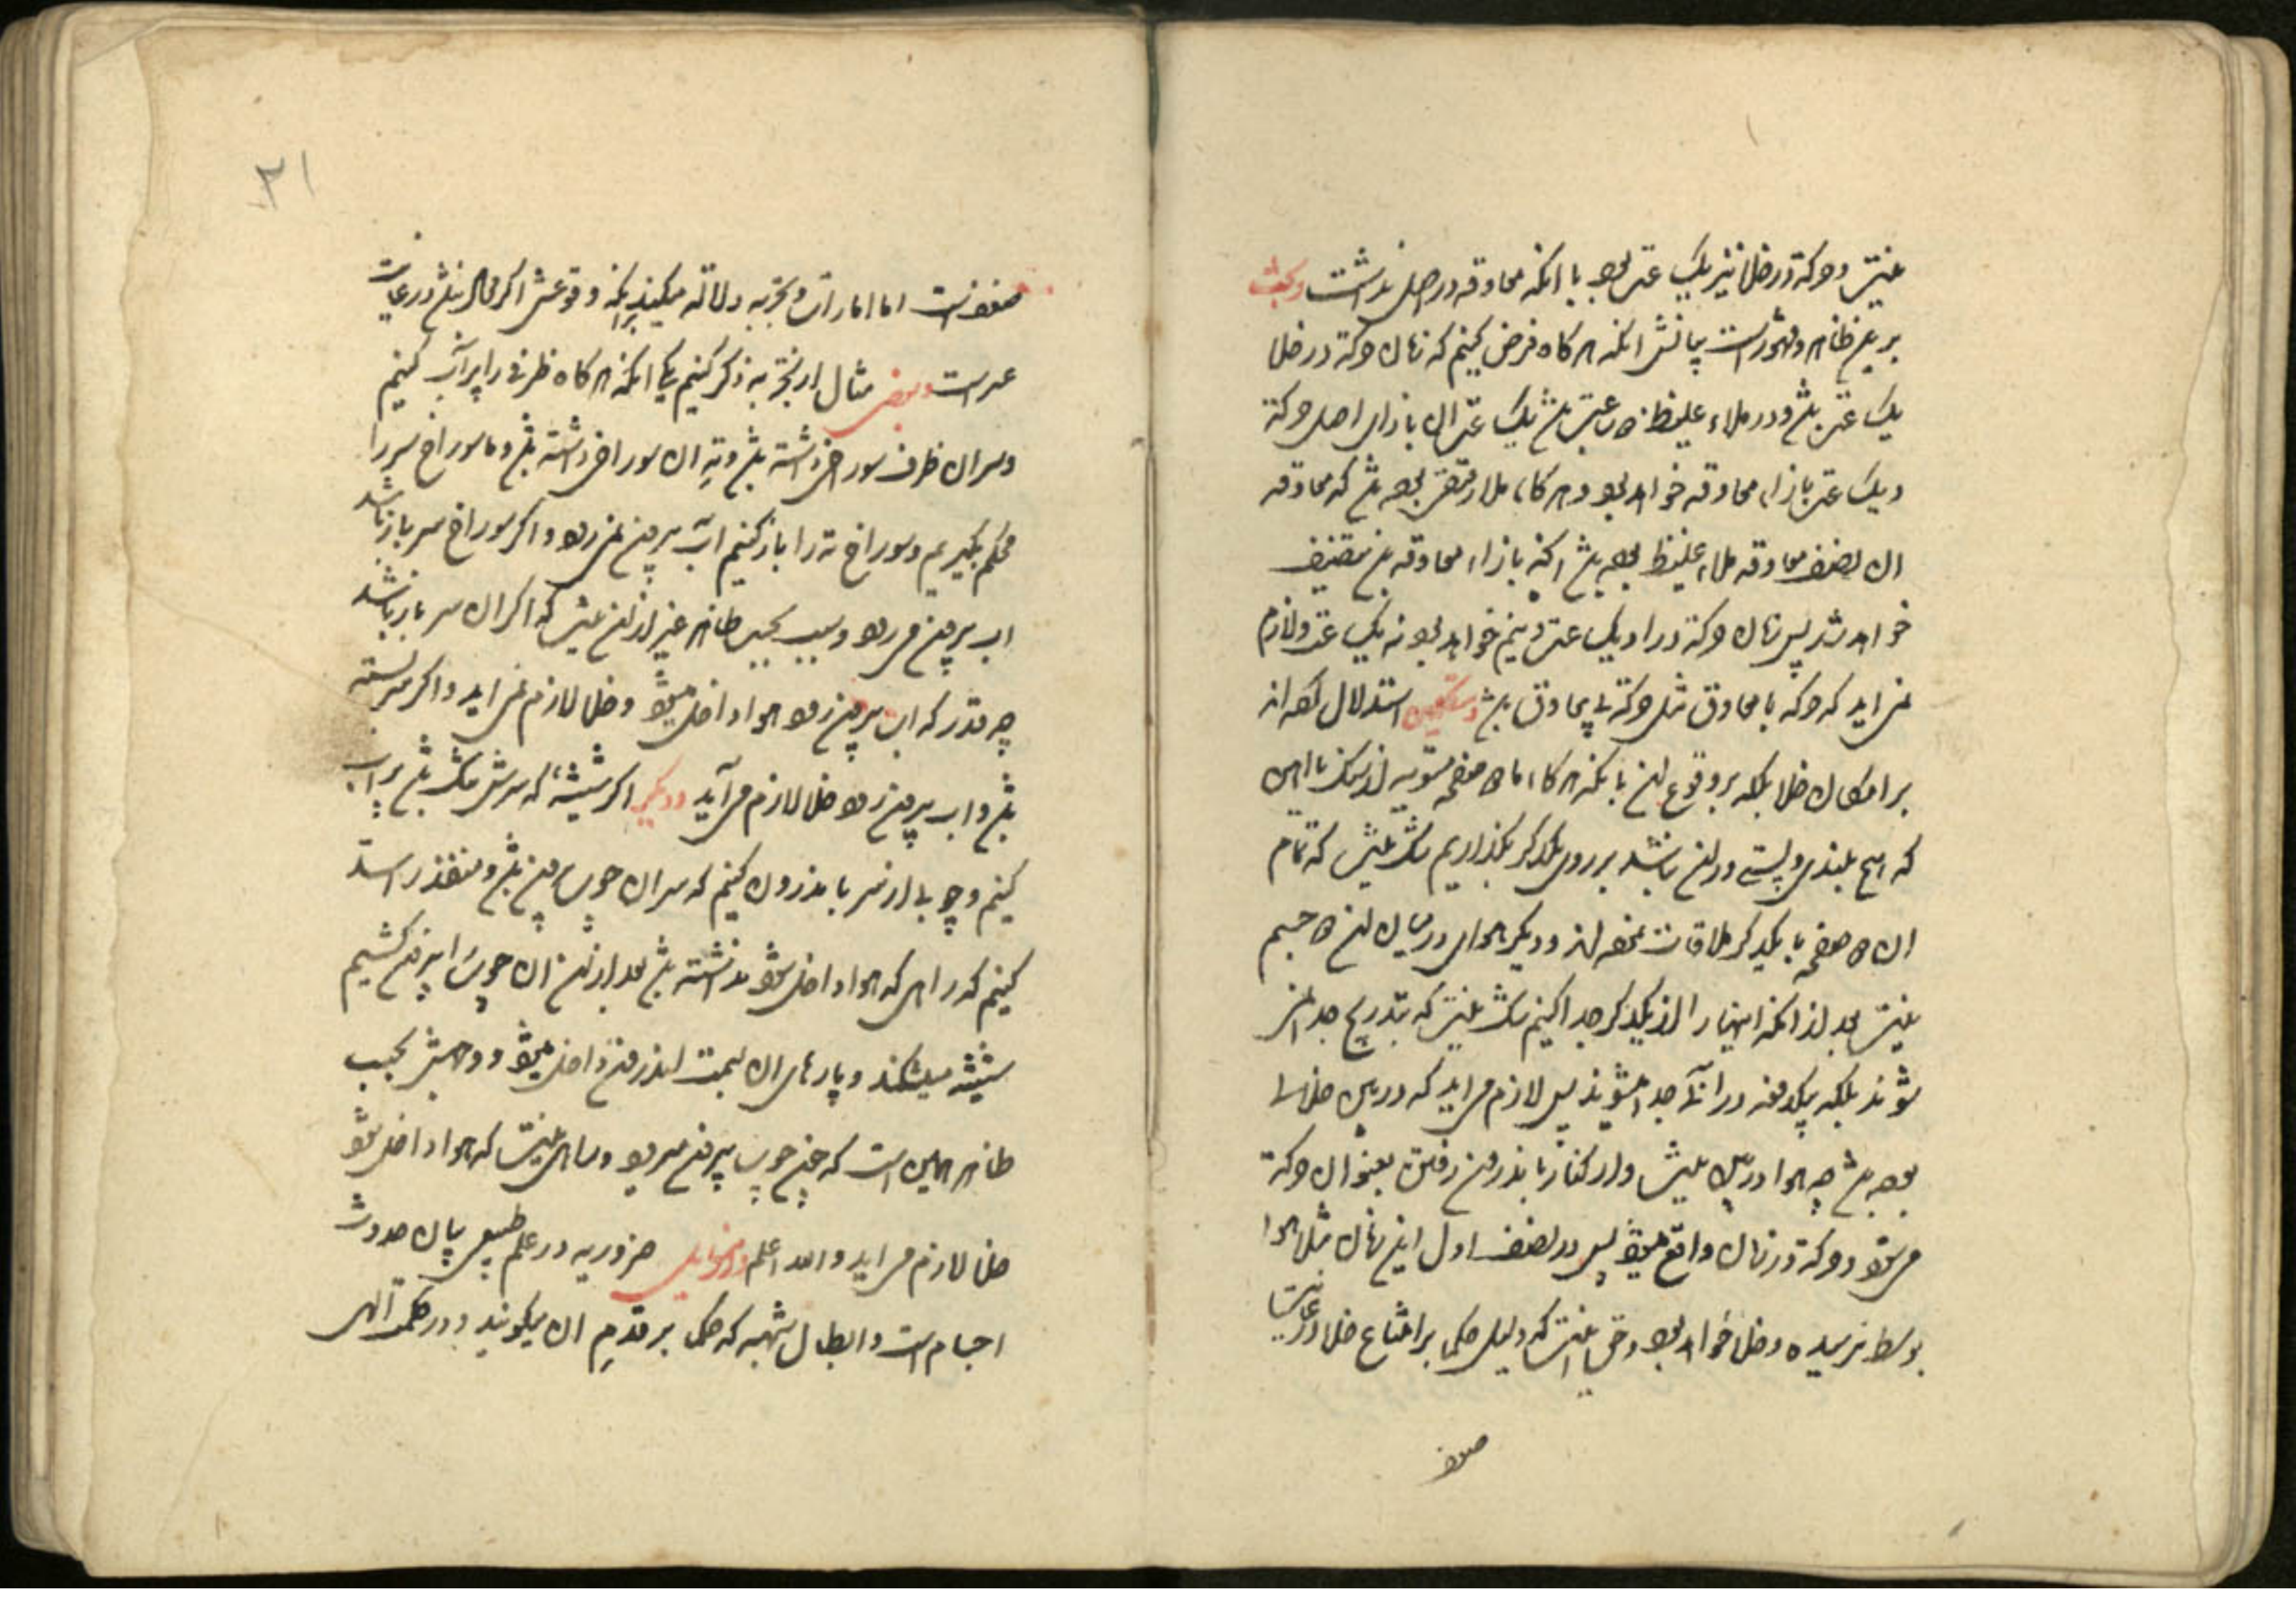 نیست و حرکة در خلا نیز یک عت بود با انکه معاوقه در اصل نداشت و بحث
بر این ظاهر و مشهور است بیانش انکه هر کاه فرض کنیم که زمان حرکة در خلا
یک عت باشد و در ملاء غلیظ دو عت باشد یک عت ان بازای اصل حرکة
و یک عت بازاء معاوقه خواهد بود و هر کاه ملا رقیق بوده باشد که معاوقه
ان نصف معاوقه ملاء غلیظ بوده باشد انکه بازاء معاوقه باشد نصف
خواهد شد پس زمان حرکة در او یک عت و نیم خواهد بود نه یک عت و لازم
نمی اید که حرکه با معاوق مثل حرکة بی معاوق باشد و متکلمین استدلال کرده اند
بر امکان خلا بلکه بر وقوع ان بانکه هر کاه ما دو صفحه مستویه از سنک یا اهن
که هیچ بلندی و پستی در ان نباشد بر روی یکدکر بکذاریم شک نیست که تمام
ان دو صفحه با یکدکر ملاقات نموده اند و دیکر هوای در میان ان دو جسم
نیست بعد از انکه اینها را از یکدکر جدا کنیم شک نیست که بتدریج جدا نمی
شوند بلکه بیکدفعه در انی جدا میشوند پس لازم می اید که در میان خلا
بوده باشد چه هوا در میان نیست و از کنار با ندرون رفتن بعنوان حرکة
می شود و حرکة در زمان واقع میشود پس در نصف اول این زمان مثلا هوا
بوسط نرسیده و خلا خواهد بود و حق انست که دلیل حکما بر امتناع خلا در غایت
ضعف
ضعف است اما امارات و تجربه دلالة میکند برانکه وقوعش اکر محال نباشد در غایت
عسر است و بعضی مثال از تجربه ذکر کنیم یکی انکه هر کاه ظرفی را پر آب کنیم
و سر ان ظرف سوراخی داشته باشد و تهِ ان سوراخی داشته باشد و ما سوراخ سر را
محکم بکیریم و سوراخ ته را باز کنیم آب بیرون نمی رود و اکر سوراخ سر باز باشد
اب بیرون می رود و سبب بحسب ظاهر غیر از این نیست که اکر ان سر باز باشد
چه قدر که اب بیرون رود هوا داخل میشود و خلا لازم نمی اید و اکر سر بسته
باشد و اب بیرون رود خلا لازم می آید و دیکر اکر شیشهٔ که سرش تنک باشد پر اب
کنیم و چوبی از سر باندرون کنیم که سر ان چوب بیرون باشد و منفذ را سد
کنیم که راهی که هوا داخل شود نداشته باشد بعد از ان ان چوب را بیرون کشیم
شیشه میشکند و پارهای ان بسمت اندرون داخل میشود و وجهش بحسب
ظاهر همین است که چون چوب بیرون میرود و راهی نیست که هوا داخل شود
خلا لازم می اید و الله اعلم و از مسایل ضروریه در علم طبیعی بیان حدوث
اجسام است و ابطال شبهه که حکما بر قدم ان میکویند و در حکمت الهی
۳۱